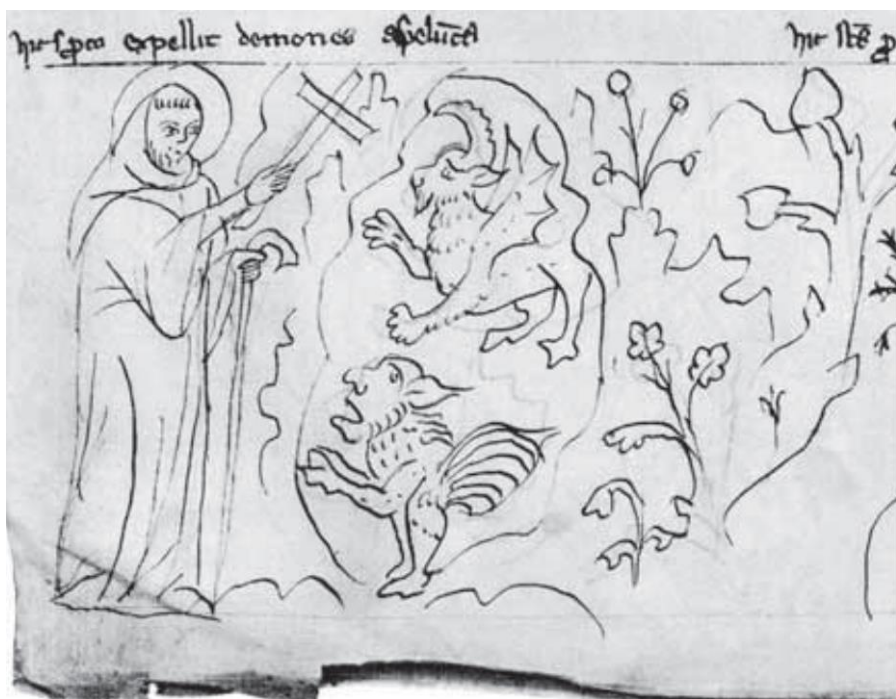 hic s p̱co expellit demones d̕ speluc̄a hic sc̄s p